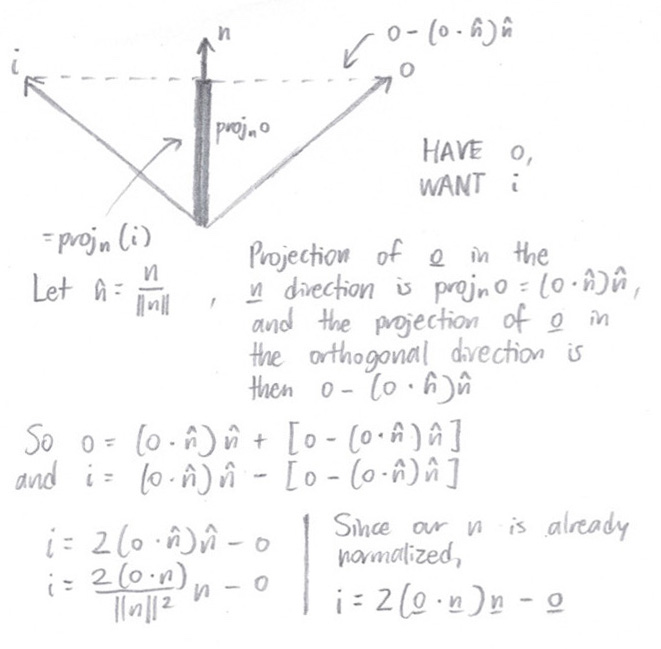 n
o - (o · n̂)n̂
i
o
projₙo
HAVE o,
WANT i
= projₙ(i)
Let n̂ = n/||n|| ,
Projection of o in the
n direction is projₙo = (o · n̂)n̂,
and the projection of o in
the orthogonal direction is
then o - (o · n̂)n̂
So o = (o · n̂)n̂ + [o - (o · n̂)n̂]
and i = (o · n̂)n̂ - [o - (o · n̂)n̂]
i = 2(o · n̂)n̂ - o
i = 2(o · n)/||n||² n - o
Since our n is already
normalized,
i = 2(o · n)n - o